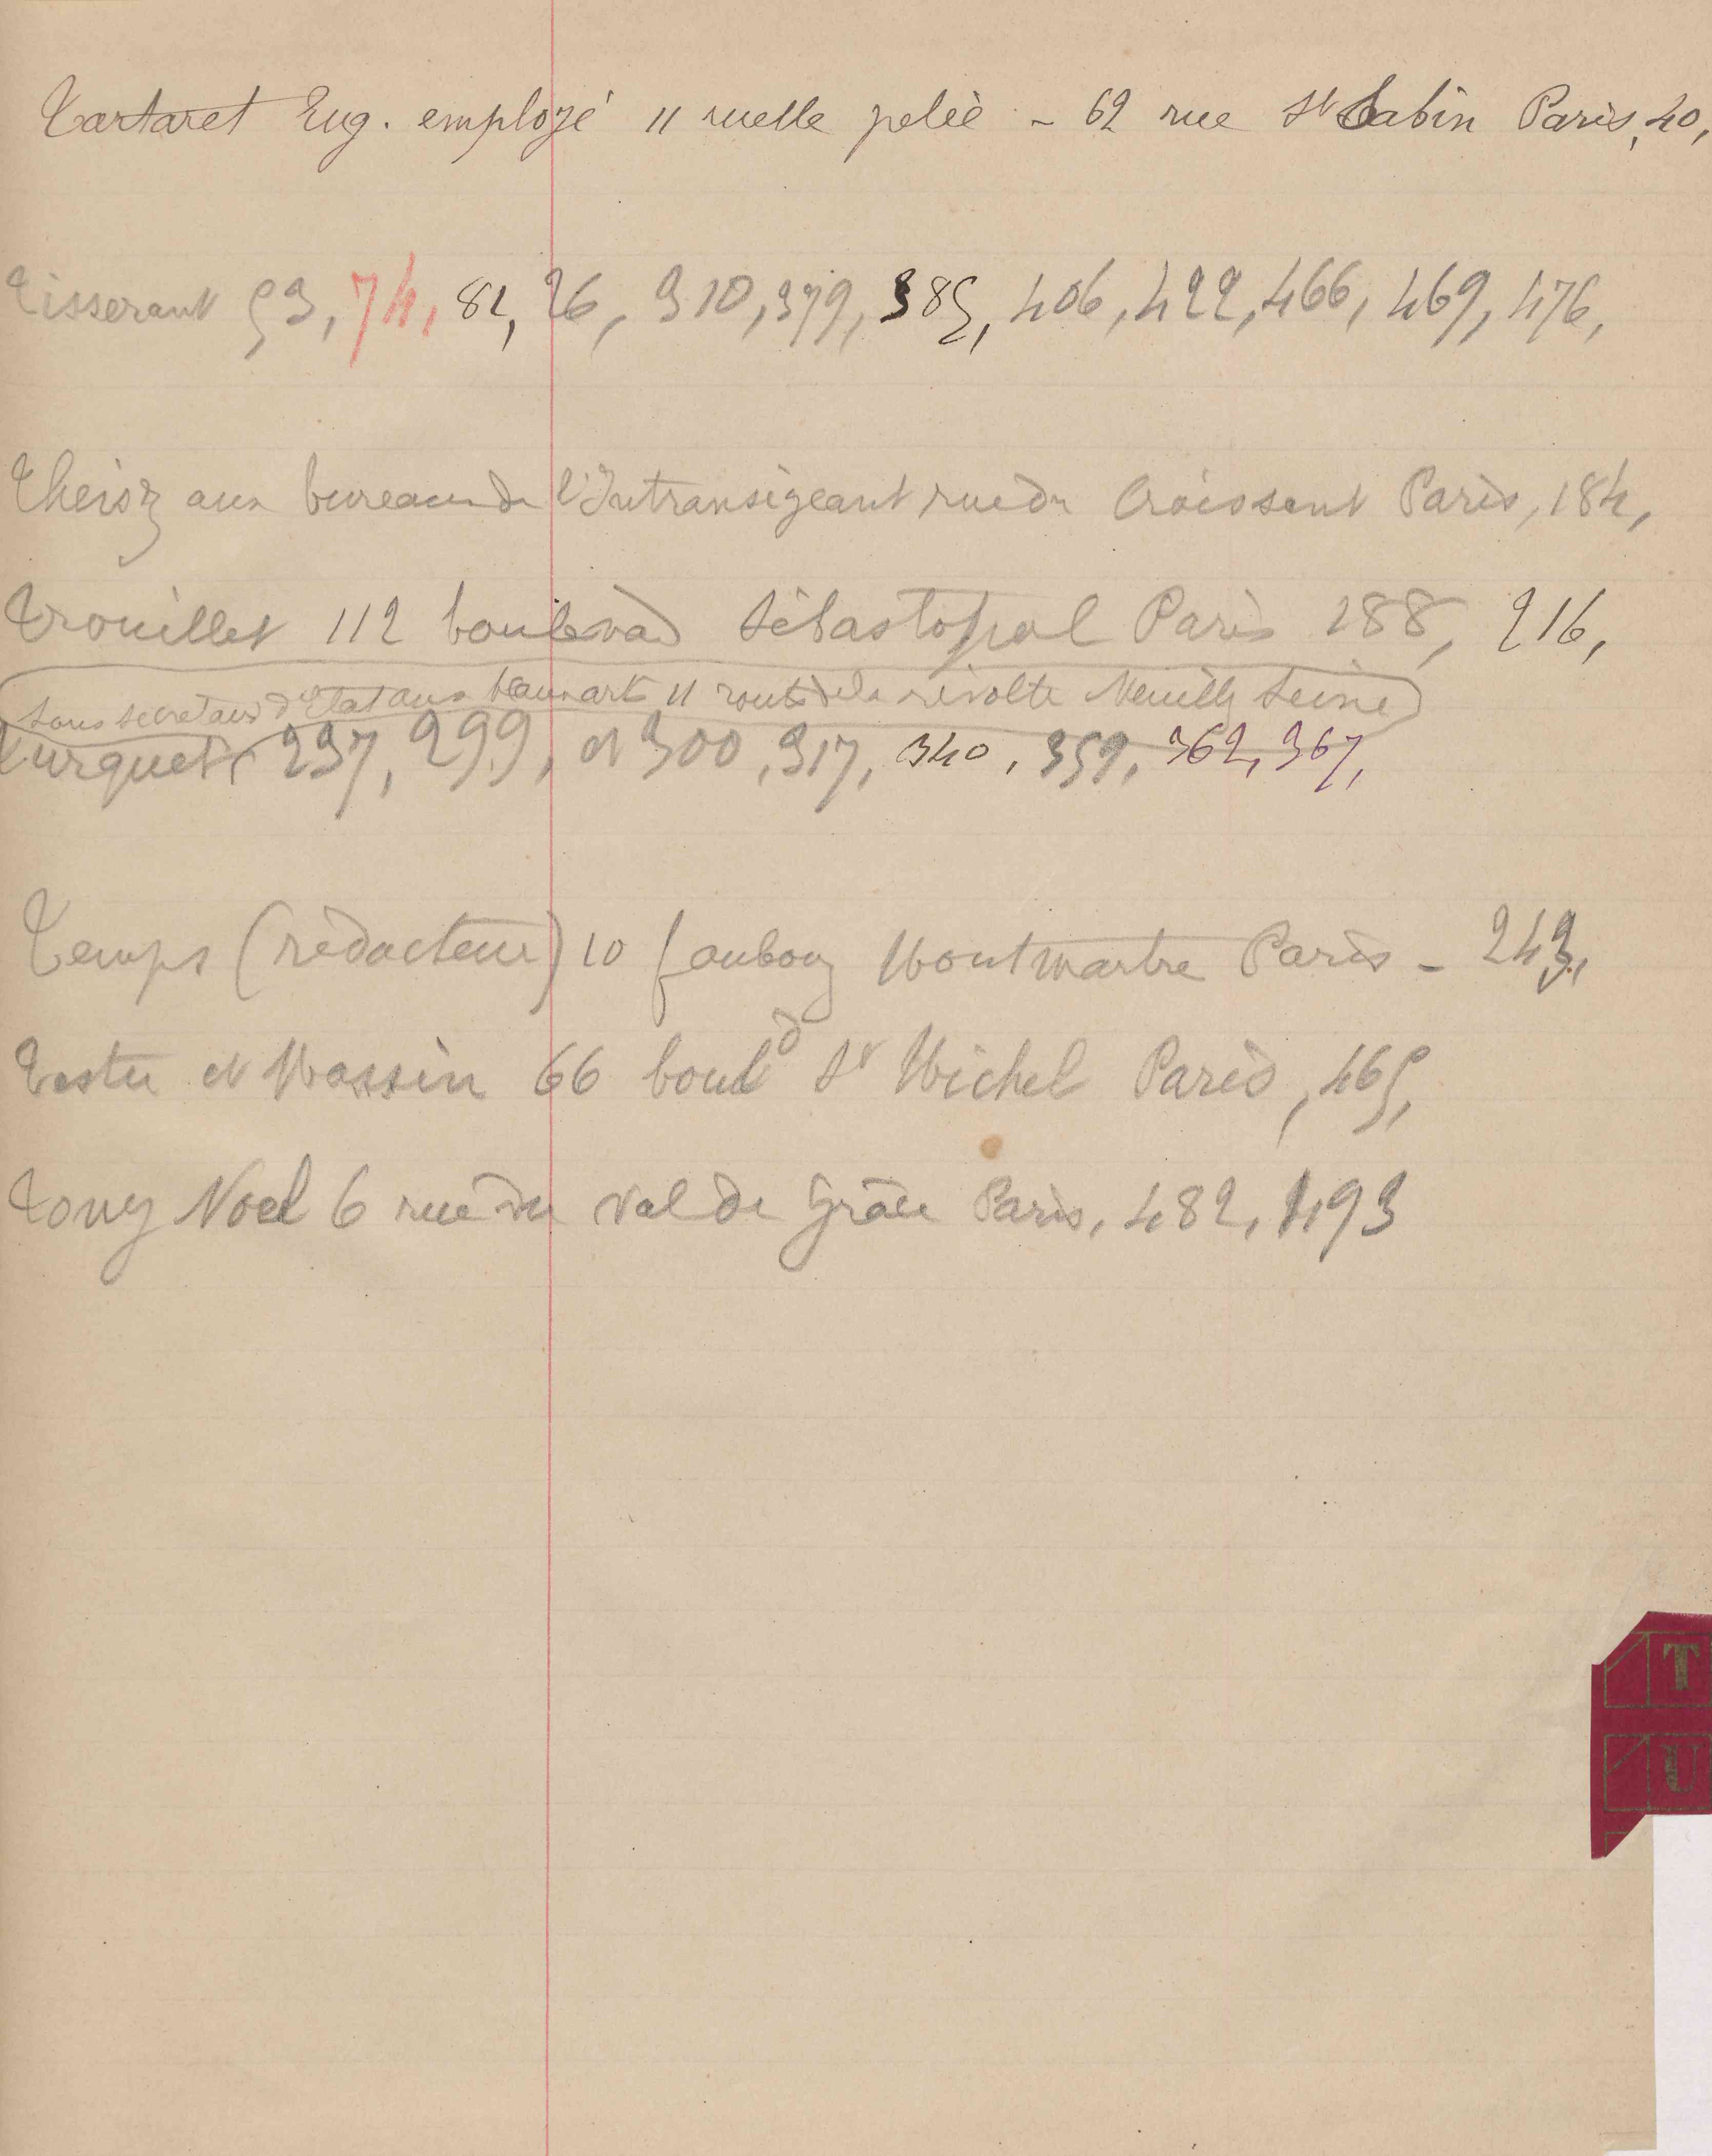 Tartaret Eug. employé 11 ruelle pelée - 62 rue St Sabin Paris, 40,
Tisserant 53, 74, 82, 26, 310, 379, 385, 406, 422, 466, 469, 476,
Theisz aux bureaux de l'Intransigeant rue du Croissant Paris, 184,
Trouillet 112 boulevard Sébastopol Paris 188, 216,
sous secretaire d'Etat aux beaux arts 11 route de la révolte Neuilly Seine
Turquet 237, 299, et 300, 317, 340, 359, 362, 367,
Temps (rédacteur) 10 faubourg Montmartre Paris - 243,
Testu et Massin 66 bould St Michel Paris, 465,
Tony Noel 6 rue du Val de Grâce Paris, 482, 493
T
U